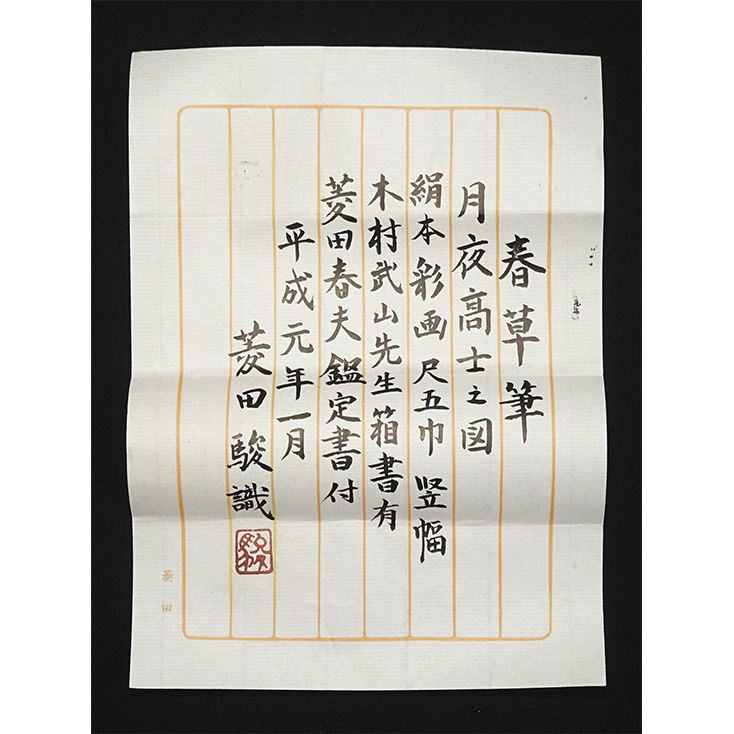 春草筆
月夜高士之図
絹本彩画 尺五巾 竪幅
木村武山先生箱書有
菱田春夫鑑定書付
平成元年一月
菱田駿識
菱田